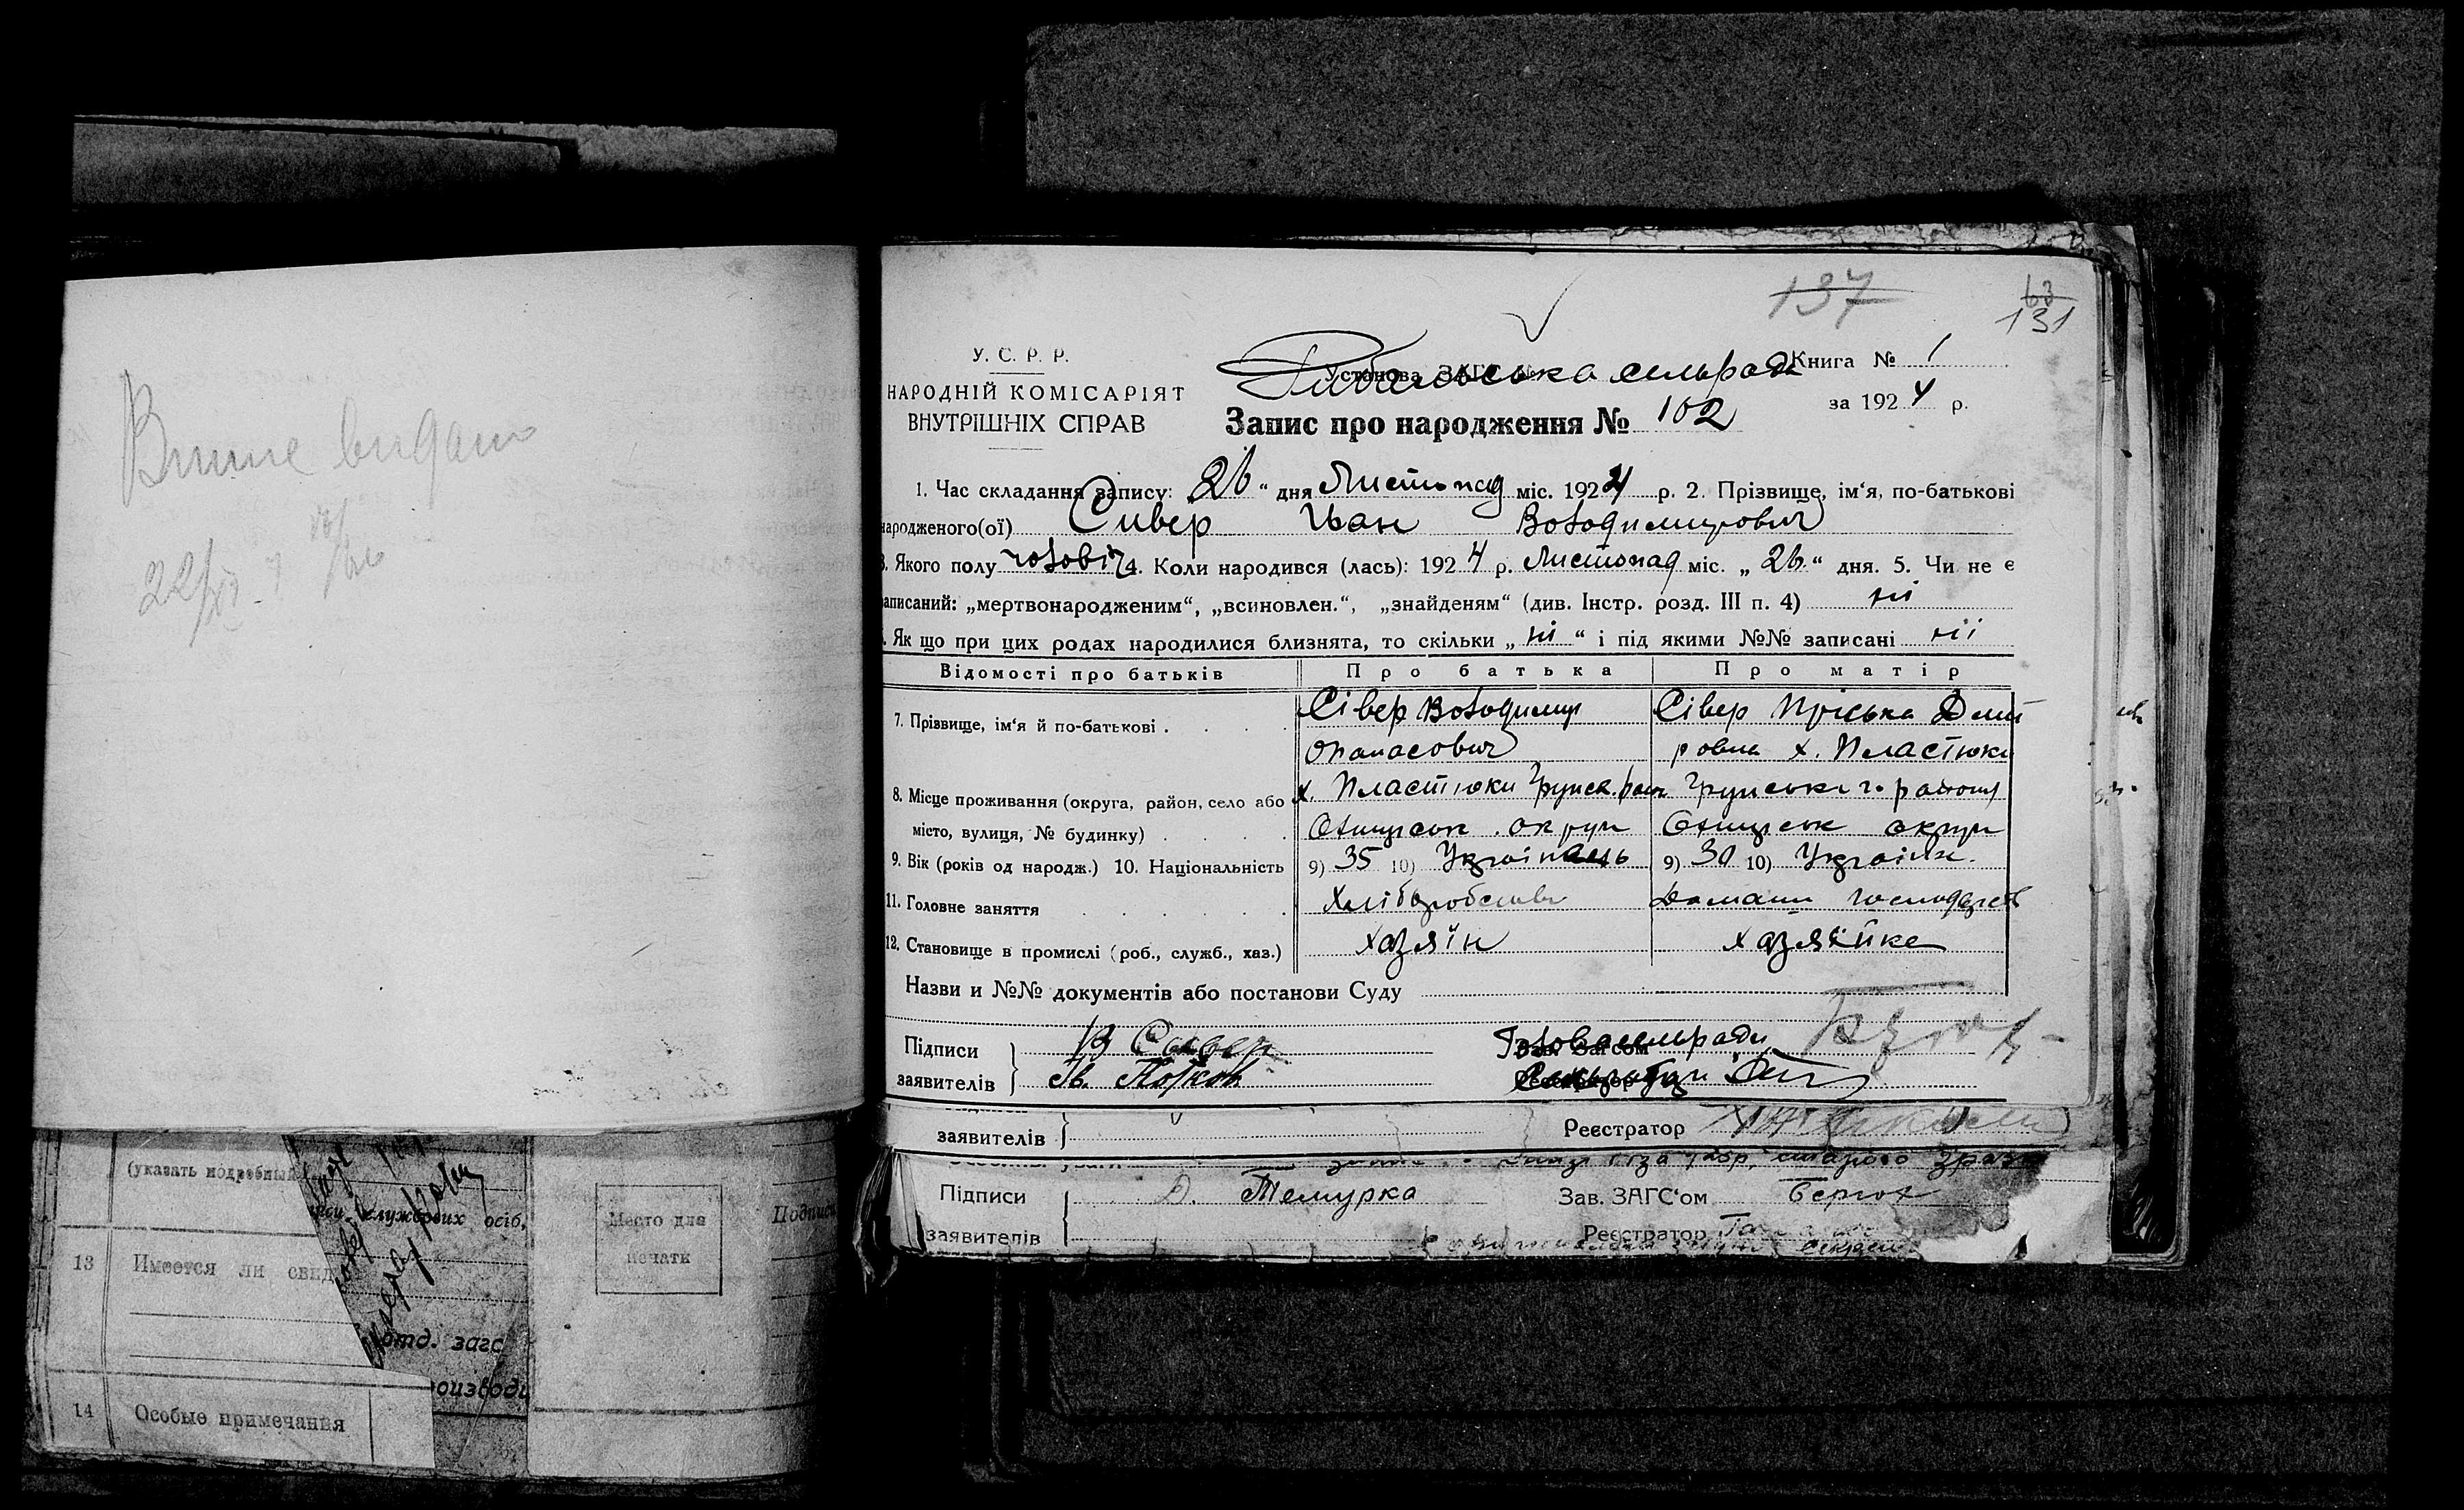 Виписе видано
137
63
131
У. С. Р. Р.
НАРОДНІЙ КОМІСАРІЯТ
ВНУТРІШНІХ СПРАВ
Установа ЗАГС №
Рибальська сельрада
Книга № 1
за 1924 р.
Запис про народження № 102
1. Час складання запису: 26 " дня Листопад міс. 1924 р. 2. Прізвище, ім'я, по-батькові
народженого(ої) Сивер Іван Володимирович
3. Якого полу чоловіч 4. Коли народився (лась): 1924 р. Листопад міс. „ 26 " дня. 5. Чи не є
записаний: „мертвонародженим“, „всиновлен.“, „знайденям“ (див. Інстр. розд. III п. 4) ні
6. Як що при цих родах народилися близнята, то скільки „ ні “ і під якими №№ записані ні
Відомості про батьків Про батька Про матір
7. Прізвище, ім'я й по-батькові . Сівер Володимир Сівер Пріська Дмит
Опанасович ровна х. Пластюки
8. Місце проживання (округа, район, село або х. Пластюки Грунск. рай Грунського району
місто, вулиця, № будинку) Охтирськ округи Охтирськ округи
9. Вік (років од народж.) 10. Національність 9) 35 10) Українець 9) 30 10) Українк.
11. Головне заняття Хліборобство Домашн господарств
12. Становище в промислі (роб., служб., хаз.) хазяїн хазяйка
Назви и №№ документів або постанови Суду
Підписи В Сивер Зав. Загсом Голова сельради
заявителів Ів. Реєстратор Секретар
заявителів Реєстратор
Підписи Темурка Зав. ЗАГС'ом
заявителів Реєстратор
(указать подробный
службових осіб,
13 Имеется ли свид
отд. загс
оизвод
14 Особые примечания
Место для
печати
Подписи